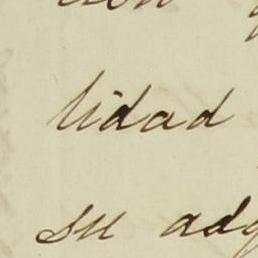 lidad
su adq